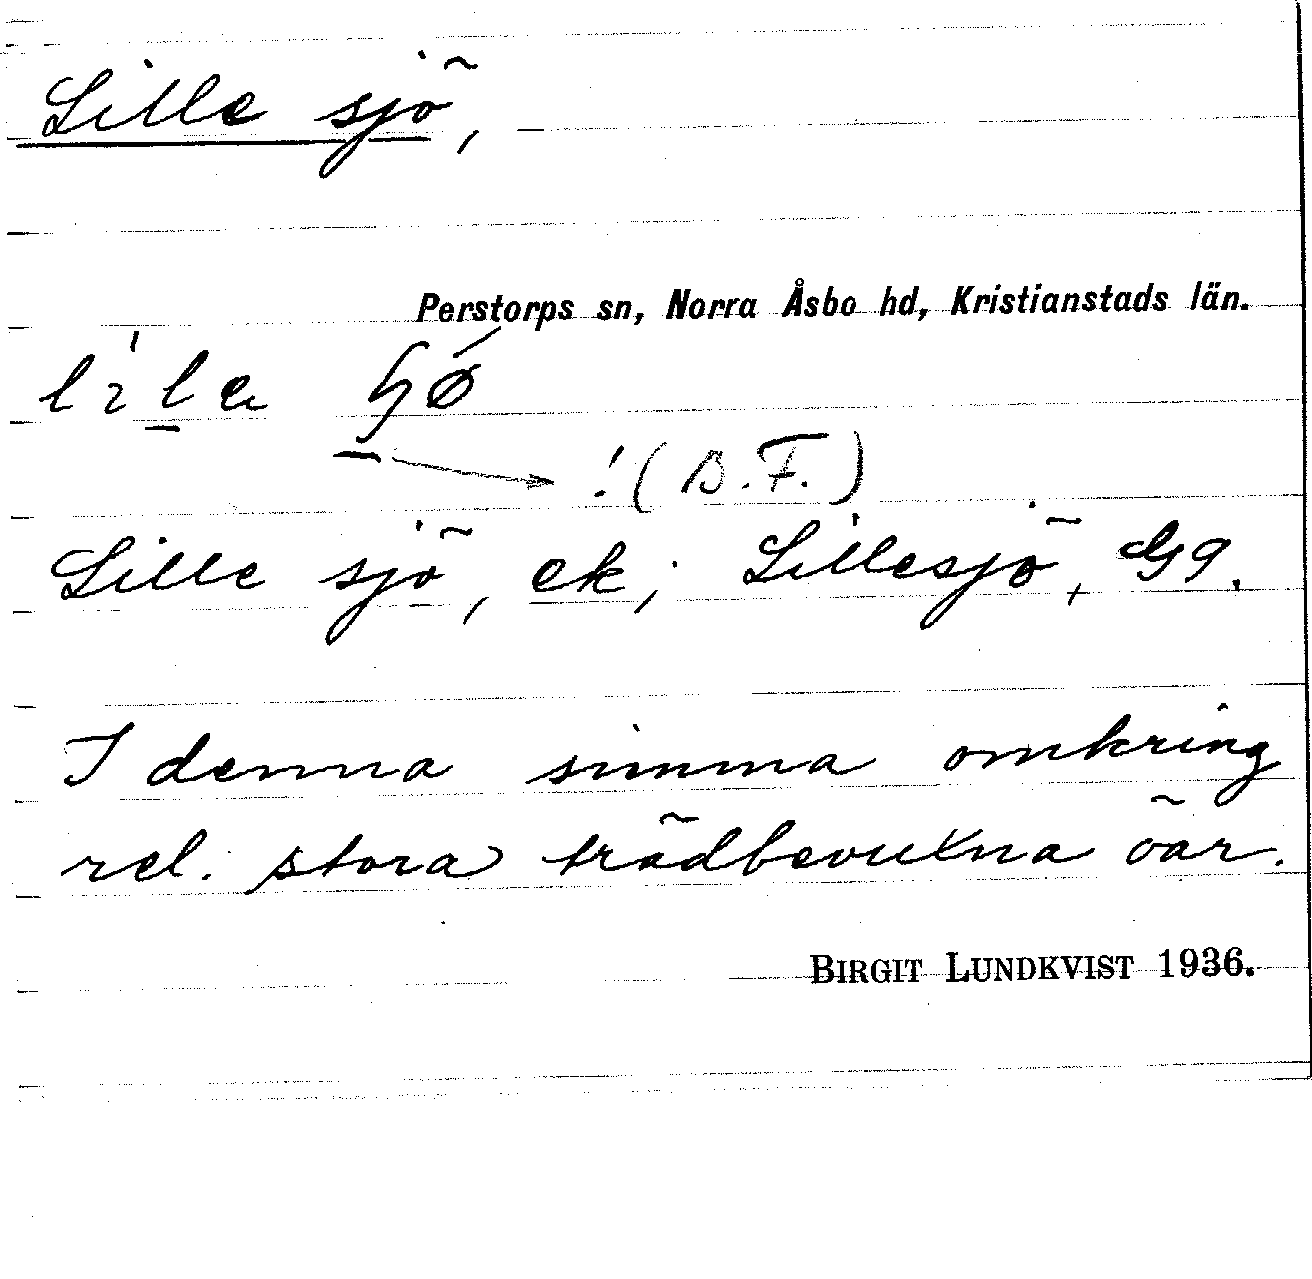 Lille sjö,
Perstorps sn, Norra Åsbo hd, Kristianstads län.
!(B.F.)
Lille sjö, ek; Lillesjö, Gg.
I denna simma omkring
rel. stora trädbevuxna öar.
BIRGIT LUNDKVIST 1936.